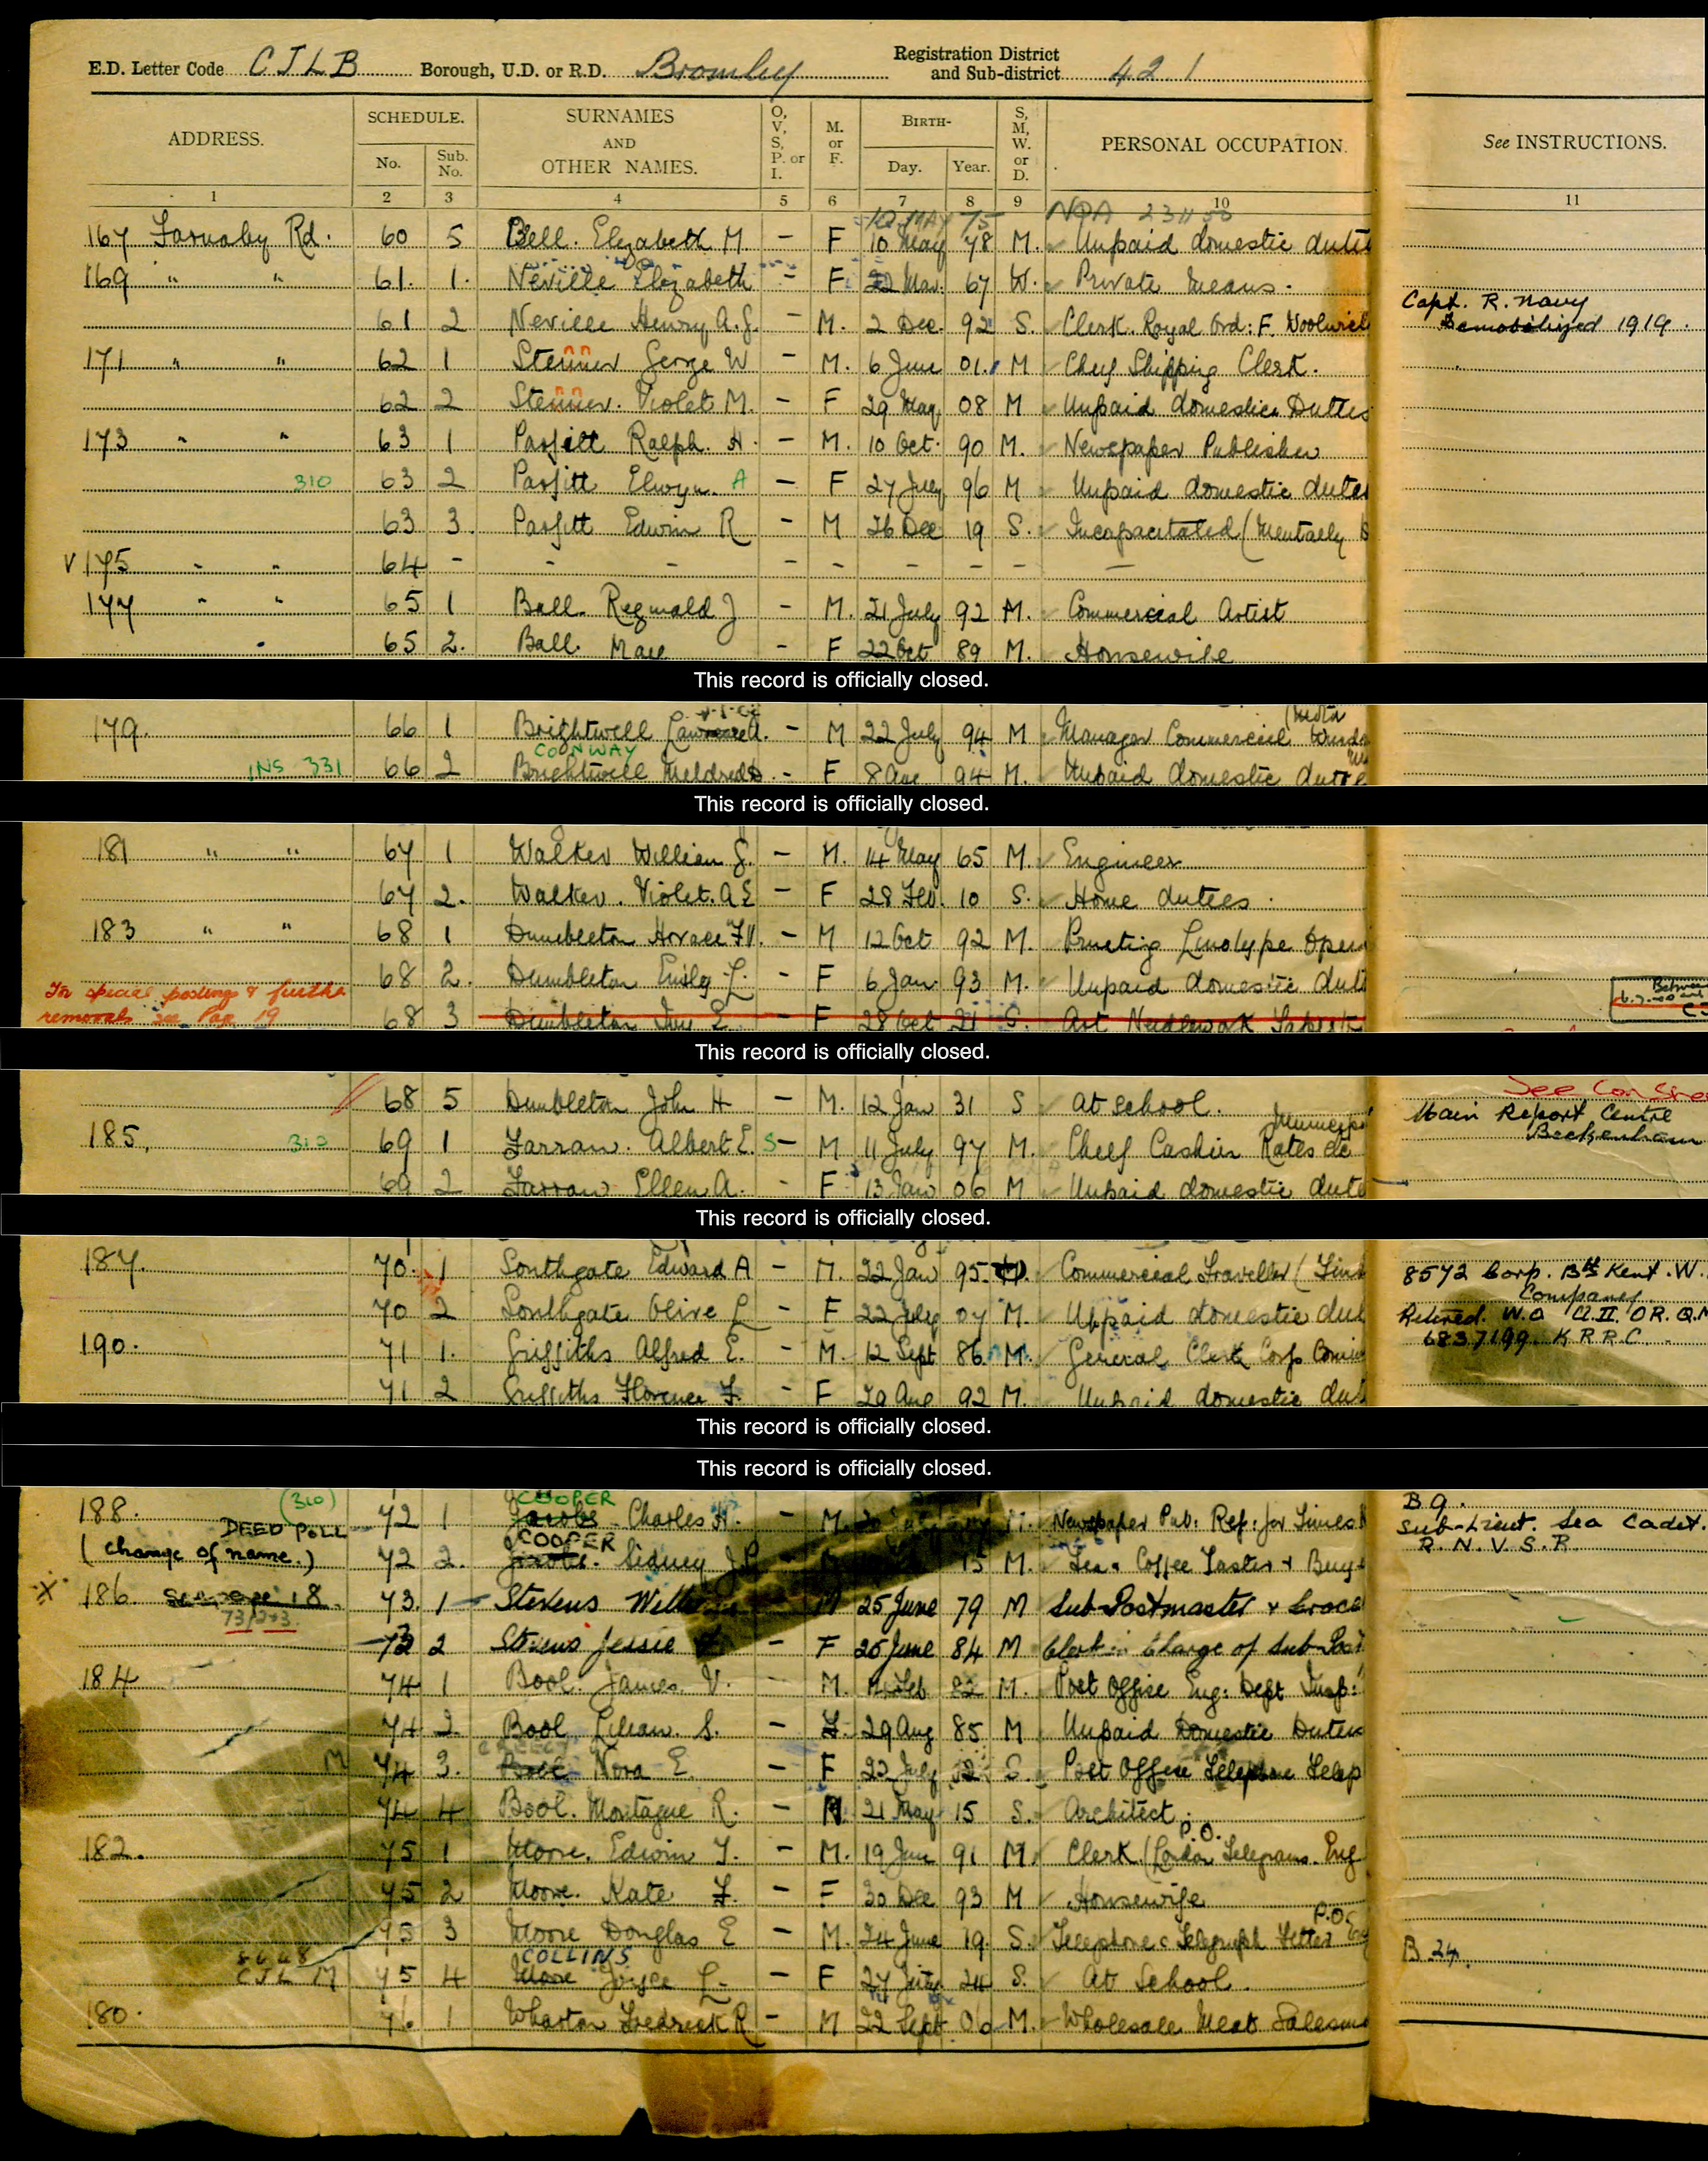 E.D. Letter Code CJLB Borough, U.D. or R.D. Bromley Registration District and Sub-district 42 1
ADDRESS. SCHEDULE. No. Sub. No. SURNAMES AND OTHER NAMES. O, V, S, P. or I. M. or F. BIRTH- Day. Year. S, M, W. or D. PERSONAL OCCUPATION. See INSTRUCTIONS.
1 2 3 4 5 6 7 8 9 10 11
10 MAY 75 NDA 231150
167 Farnaby Rd. 60 5 Bell. Elizabeth M. - F 10 May 78 M. Unpaid domestic duti
169 " " 61. 1. Neville Elizabeth - F Mar. 67 W. Private means.
Capt. R. Navy
61 2 Neville Henry A.G. - M. 2 Dec. 92 S. Clerk. Royal Ord: F. Woolwich Demobilized 1919.
171 " " 62 1 Stenner George W - M. 6 June 01. M Chief Shipping Clerk.
62 2 Stenner. Violet M. - F 29 May 08 M Unpaid domestic Duties
173 " " 63 1 Parfitt Ralph. H. - M. 10 Oct. 90 M. Newspaper Publisher
310 63 2 Parfitt Elwyn. A - F 27 July 96 M Unpaid domestic duties
63 3. Parfitt Edwin R - M 26 Dec 19 S. Incapacitated (Mentally
V 175 " " 64 - - - - - - - - -
177 " " 65 1 Ball. Reginald J - M. 21 July 92 M. Commercial Artist
" 65 2. Ball. May - F 22 Oct 89 M. Housewife
This record is officially closed.
179. 66 1 Brightwell - M 22 July 94 M Manager Commercial
CONWAY
INS 331 66 2 Brightwell Mildred - F 8 Aug 94 M. Unpaid domestic dutie
This record is officially closed.
181 " " 67 1 Walker William G. - M. 14 May 65 M. Engineer
67 2. Walker. Violet. A E - F 28 Feb. 10 S. Home duties.
183 " " 68 1 Dumbleton Horace F W. - M 12 Oct 92 M. Printing Linotype Oper
68 2. Dumbleton Emily L. - F 6 Jan. 93 M. Unpaid domestic duti
For special postings & further
removals see Page 19 68 3 Dumbleton E. - F 28 Oct 21 S. Art Needlework
This record is officially closed.
68 5 Dumbleton John H - M. 12 Jan 31 S At school.
See
Main Report Centre
Beckenham
185. 310 69 1 Farran. Albert E. S - M 11 July 97 M. Chief Cashier Rates
69 2 Farran Ellen A. - F 13 Jan 06 M Unpaid domestic duti
This record is officially closed.
187. 70. 1 Southgate Edward A - M. 22 Jan 95. Commercial Traveller 8572 Corp. Bth Kent. W.
Company
70 2 Southgate Olive L - F 22 July 07 M. Unpaid domestic duti Retired. W.O Cl. II. OR. Q.M
190. 71 1. Griffiths Alfred E. - M. 12 Sept 86 M. General Clerk Corps 6837199 K.R.R.C.
71 2 Griffiths Florence F. - F 29 Aug 92 M. Unpaid domestic duti
This record is officially closed.
This record is officially closed.
188. (310) 72 1 COOPER Jacobs Charles H. - M. M. Newspaper Pub: Rep: for Times B9.
DEED POLL
(change of name.) COOPER 72 2. Jacobs. Sidney 15 M. Tea & Coffee Taster & Buy Sub-Lieut. Sea Cadet.
R.N.V.S.R.
X 186. See page 18. 73. 1 Stevens M 25 June 79 M Sub Postmaster & Groce
73/2+3
73 2 Stevens Jessie - F 25 June 84 M Clerk in Charge of Sub-Post
184 74 1 Bool. James. V. - M. Feb 82 M. Post Office Eng: Dept Insp:
74 2. Bool Lilian. S. - F. 29 Aug 85 M Unpaid Domestic Duties
M 74 3. Bool Nora E. - F 23 July 12 S. Post Office Telephone Telep
74 4 Bool. Montague R. - M 21 May 15 S. Architect.
P.O.
182. 75 1 Moore. Edwin T. - M. 19 Jan 91 M. Clerk. (London Telegrams. Eng
75 2 Moore. Kate F. - F 30 Dec 93 M Housewife
P.O.
75 3 Moore Douglas E - M. 24 June 19. S. Telephone & Telegraph Fitter
COLLINS B 24.
CJL M 75 4 Moore Joyce L. - F 27 July 24 S. At School.
180. 76 1 Wharton Fredrick R - M 22 Sept 06 M. Wholesale Meat Salesman